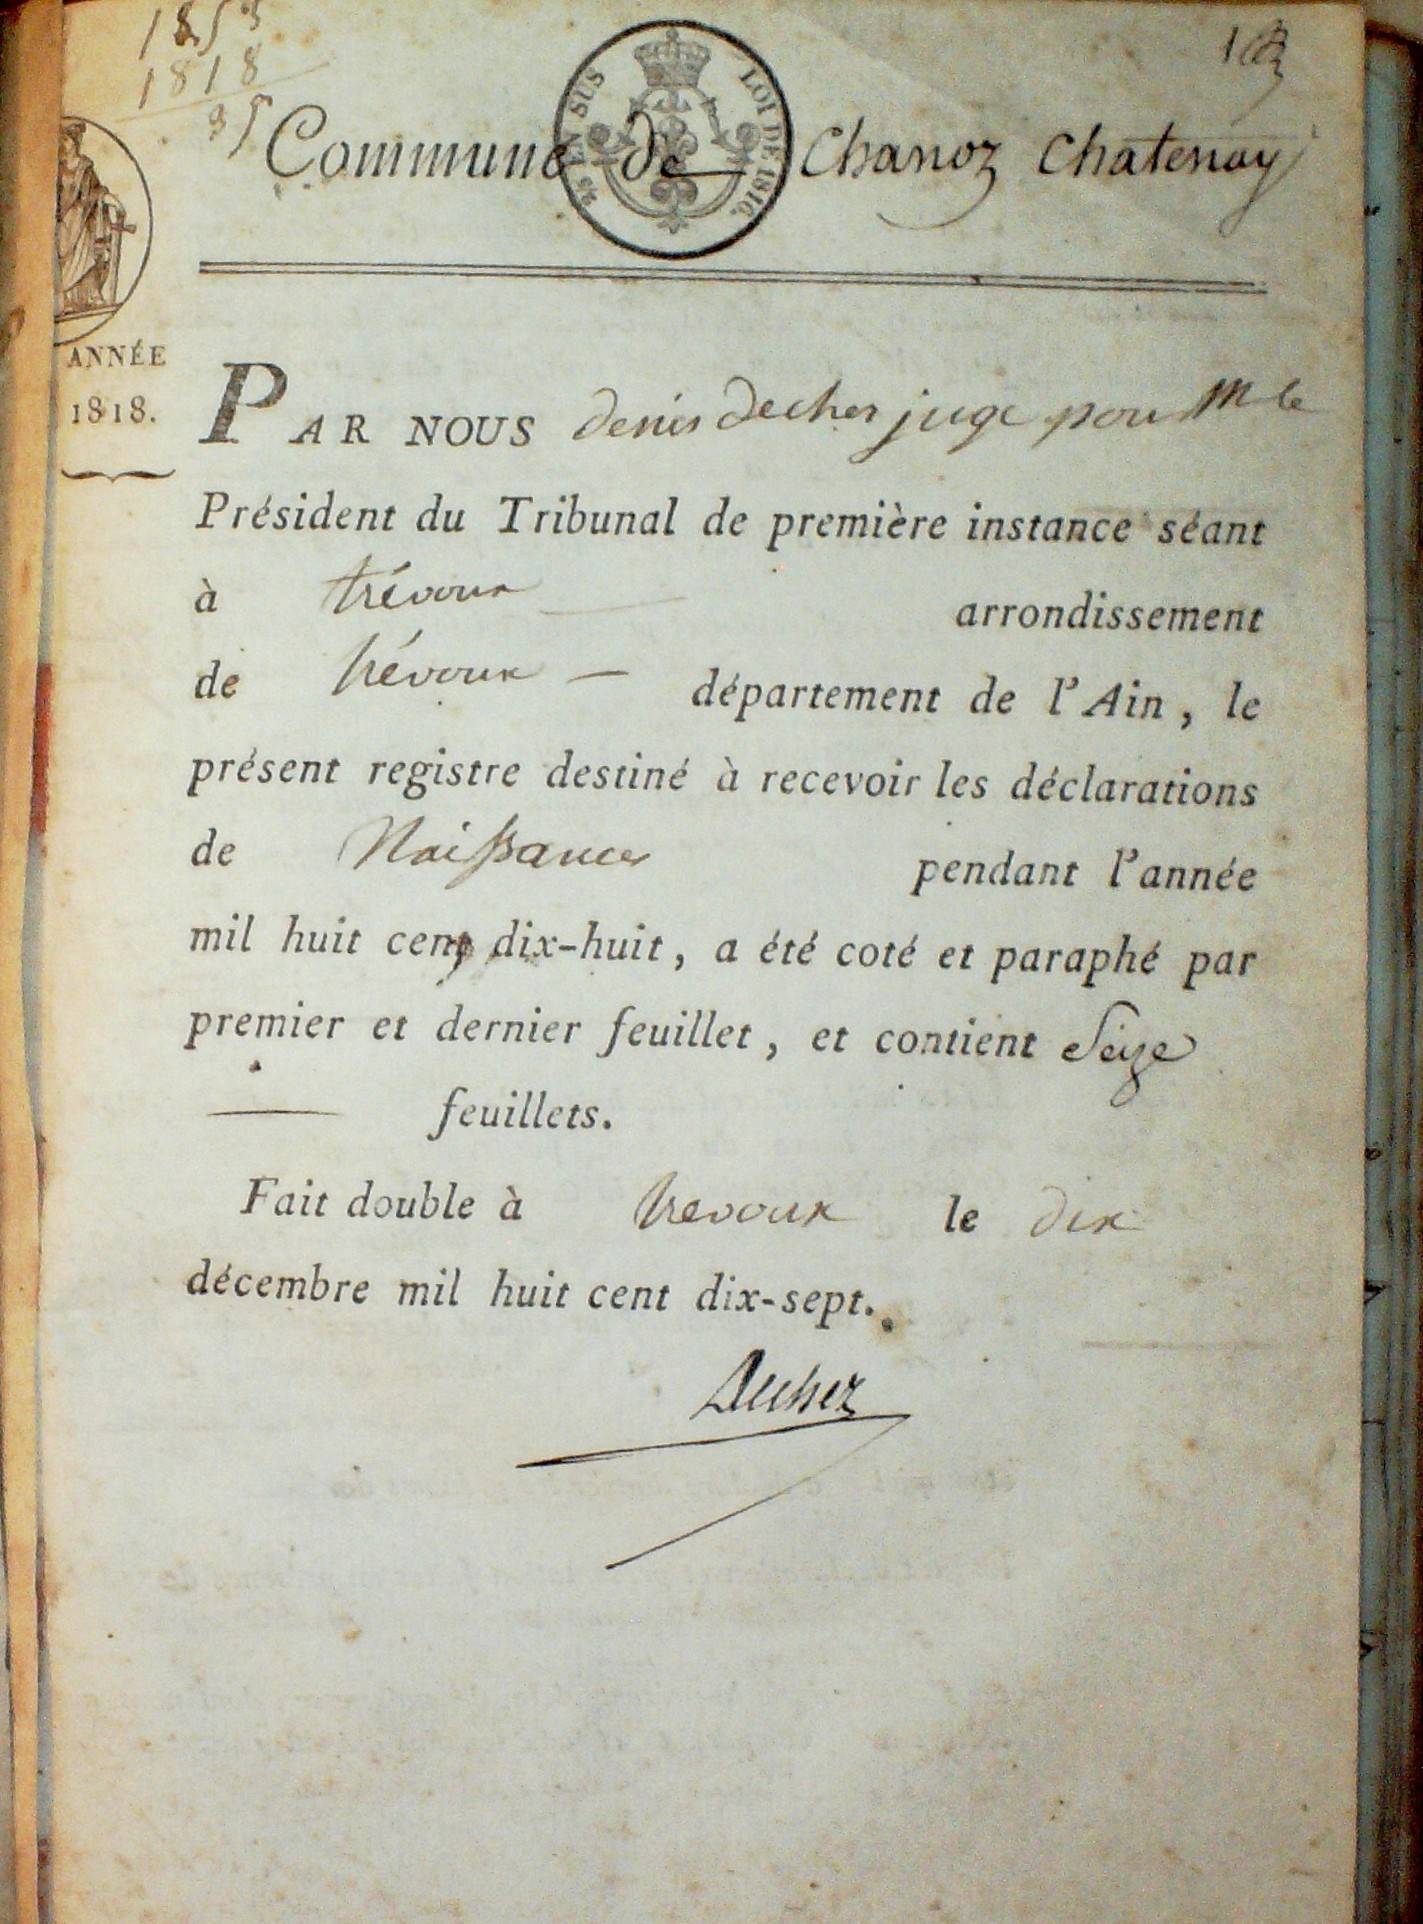 1853
1818
35
25 EN SUS LOI DE 1816.
Commune de Chanoz Chatenay
ANNÉE
1818.
PAR NOUS denis decher juge pour Mr le
Président du Tribunal de première instance séant
à trévoux arrondissement
de trévoux — département de l'Ain, le
présent registre destiné à recevoir les déclarations
de Naissances pendant l'année
mil huit cent dix-huit, a été coté et paraphé par
premier et dernier feuillet, et contient Seize
feuillets.
Fait double à trevoux le dix
décembre mil huit cent dix-sept.